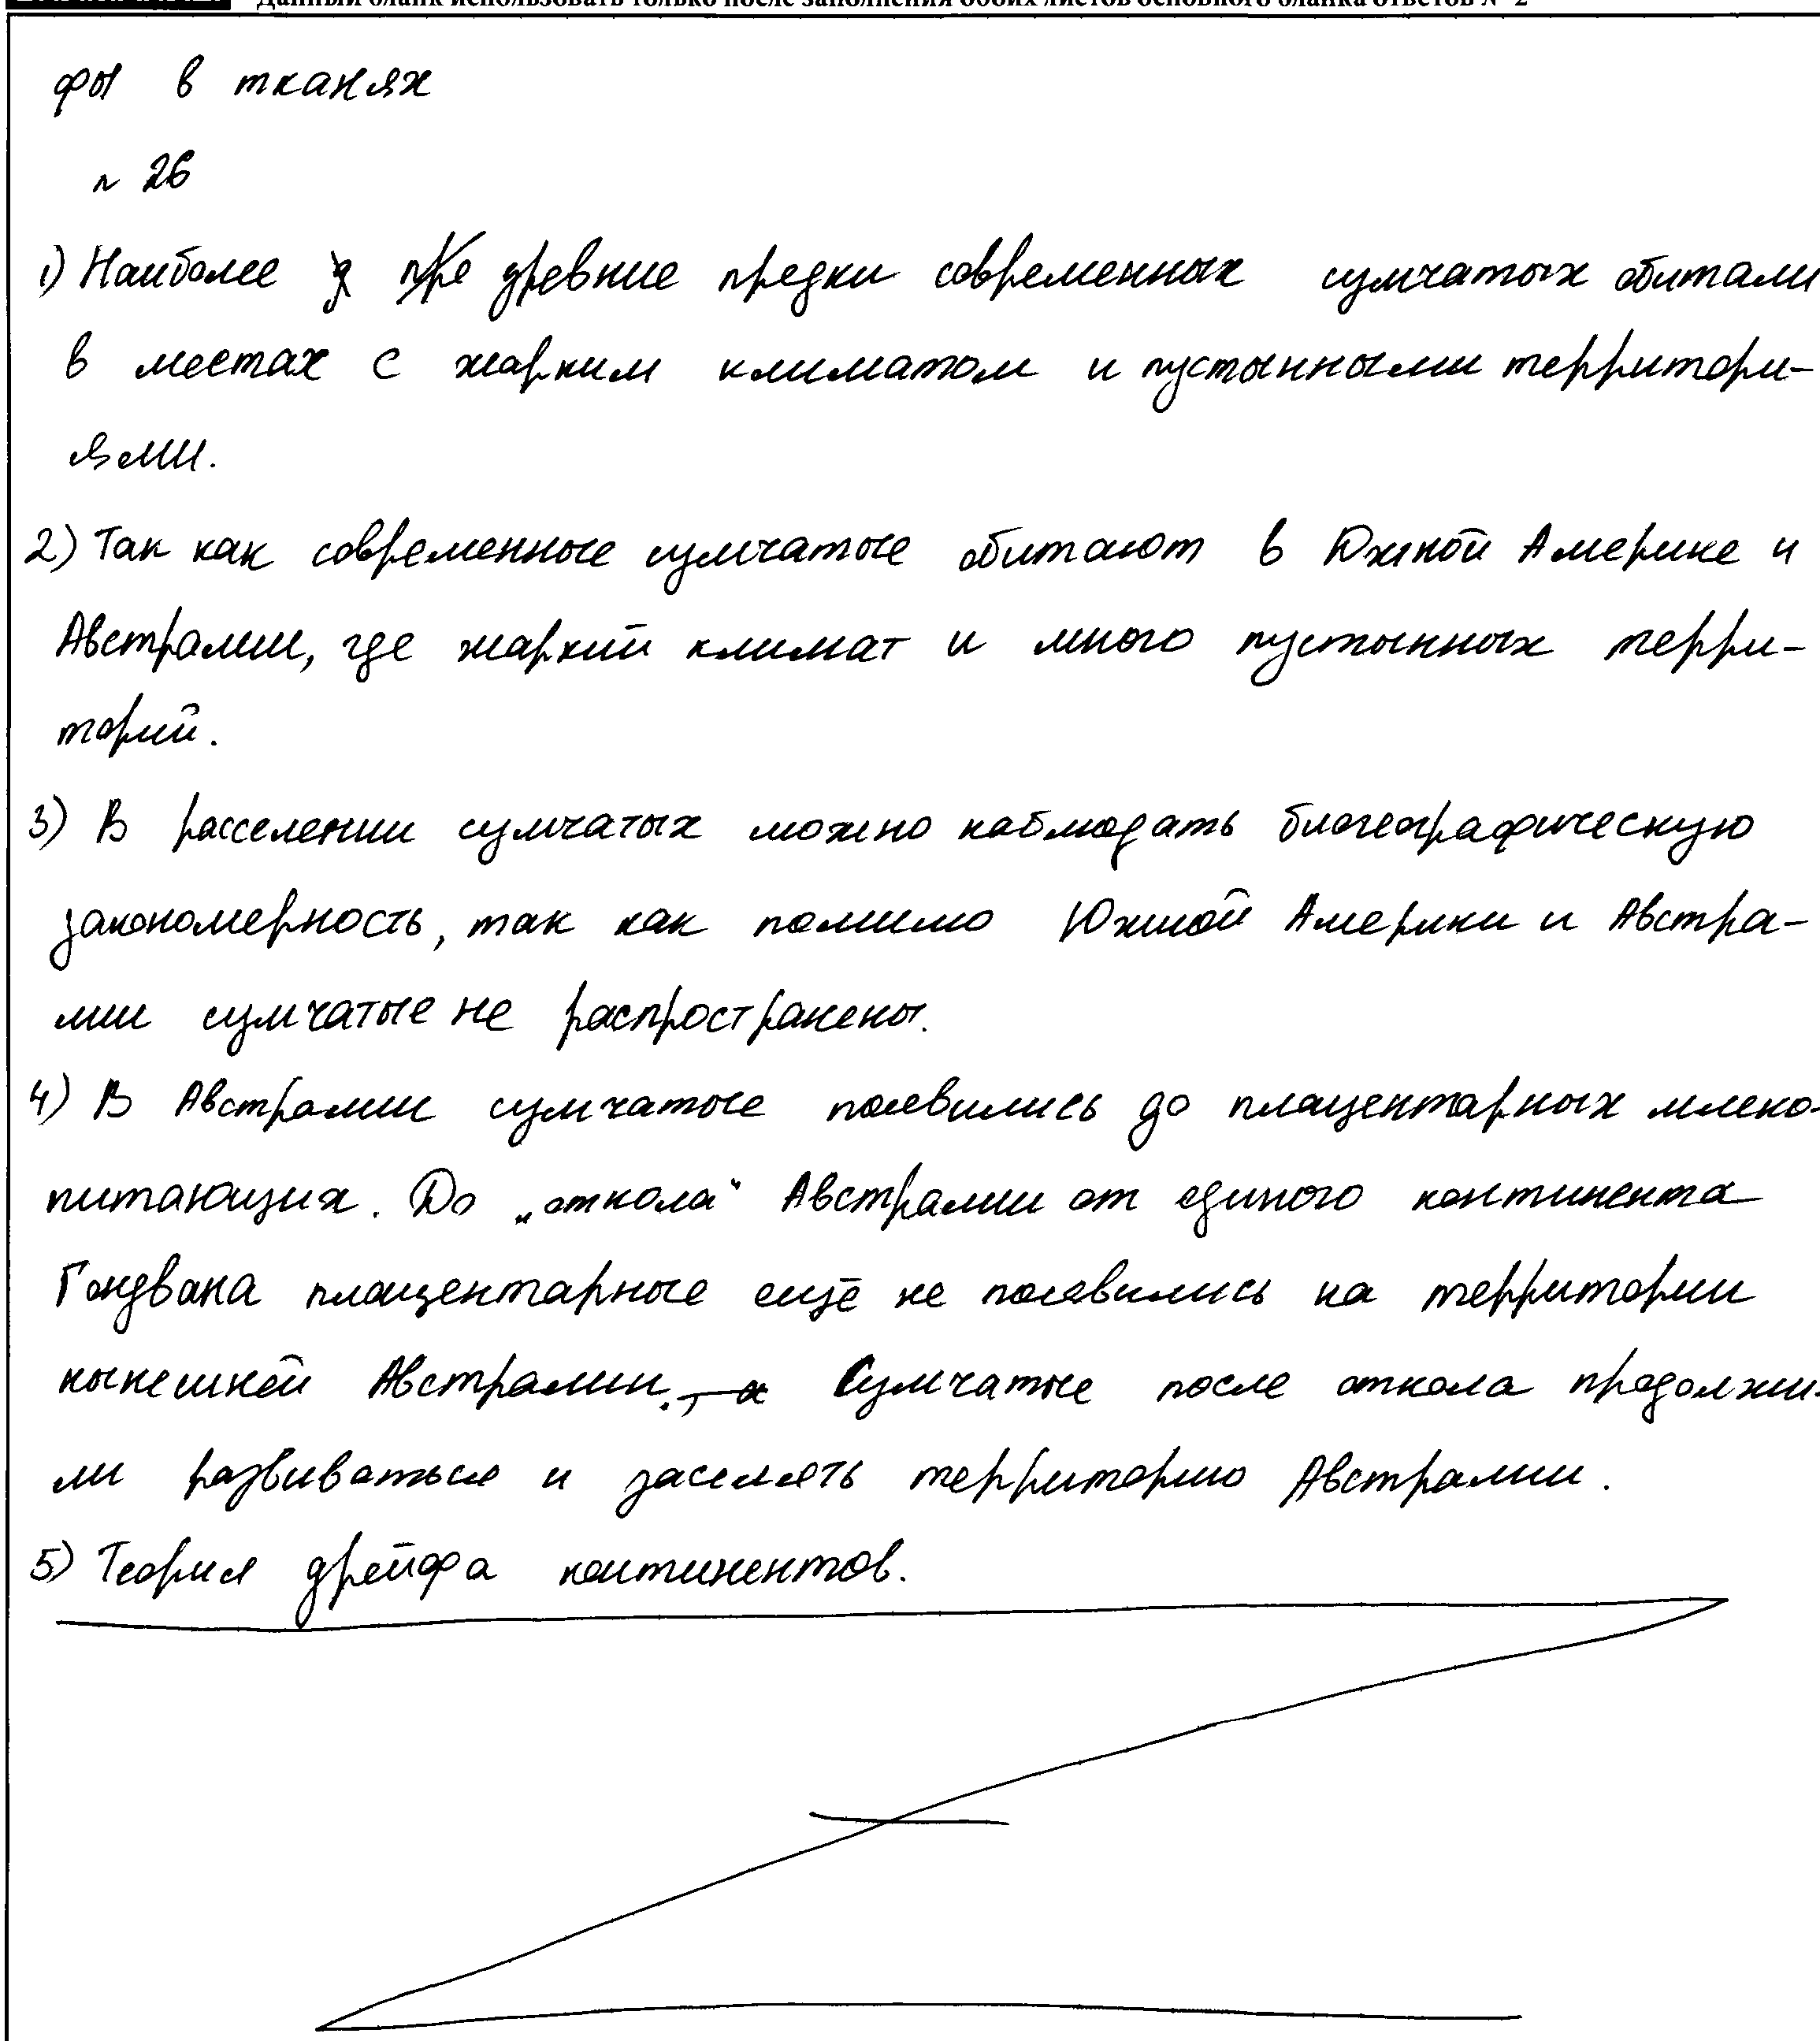 Данный бланк использовать только после заполнения обоих листов основного бланка ответов № 2
фы в тканях
n 26
1) Наиболее древние предки современных сумчатых обитали
в местах с жарким климатом и пустынными территори-
ями.
2) Так как современные сумчатые обитают в Южной Америке и
Австралии, где жаркий климат и много пустынных терри-
торий.
3) В расселении сумчатых можно наблюдать биогеографическую
закономерность, так как помимо Южной Америки и Австра-
лии сумчатые не распространены.
4) В Австралии сумчатые появились до плацентарных млеко-
питающих. До „откола“ Австралии от единого континента
Гондвана плацентарные ещё не появились на территории
нынешней Австралии. Сумчатые после откола продолжи-
ли развиваться и заселять территорию Австралии.
5) Теория дрейфа континентов.